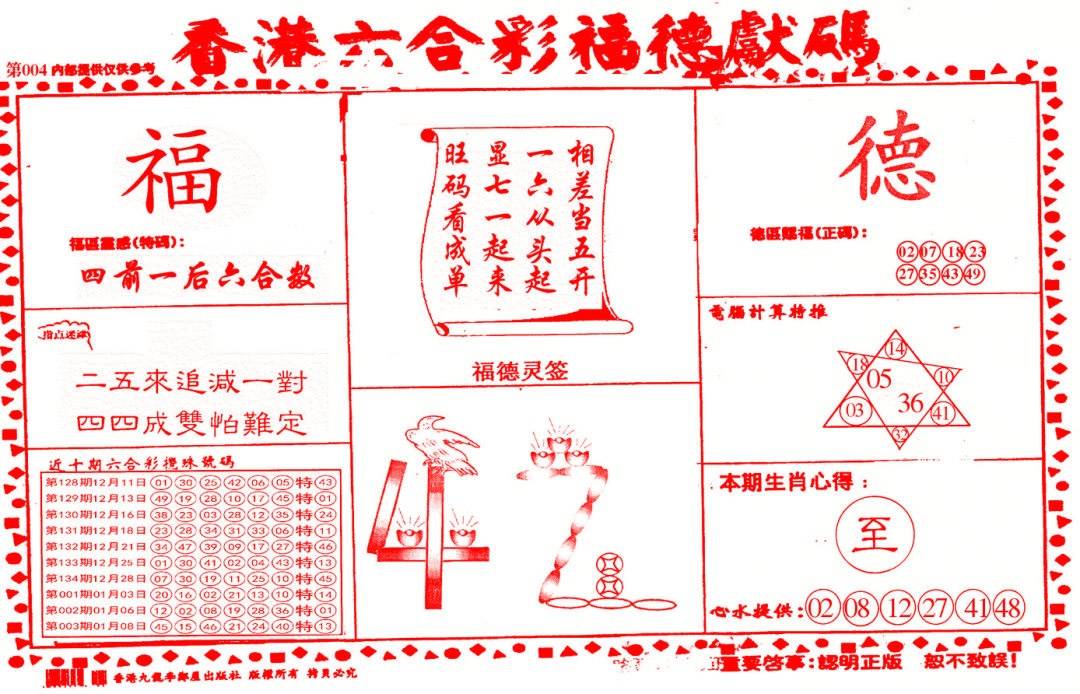 香港六合彩福德獻碼
第004内部提供仅供参考
福
福區靈感(特碼):
四前一后六合数
指点迷津
二五來追減一對
四四成雙怕難定
近十期六合彩攪珠號碼
第128期12月11日 01 30 25 42 06 05 特 43
第129期12月13日 49 19 28 10 17 45 特 01
第130期12月16日 38 23 03 28 12 35 特 24
第131期12月18日 23 28 34 31 33 06 特 11
第132期12月21日 34 47 39 09 17 27 特 46
第133期12月25日 01 30 41 02 04 43 特 13
第134期12月28日 07 30 19 11 25 10 特 45
第001期01月03日 20 16 02 21 13 10 特 14
第002期01月06日 12 02 08 19 28 36 特 01
第003期01月08日 45 15 46 21 24 40 特 13
相差当五开
一六从头起
显七一起来
旺码看成单
福德灵签
42
德
德區賜福(正碼):
02 07 18 23
27 35 43 49
電腦計算特推
14
18 05 10
03 36 41
32
本期生肖心得:
至
心水提供: 02 08 12 27 41 48
香港九龍李鄭屋出版社 版權所有 拷貝必究
重要啓事:認明正版 恕不致誤!